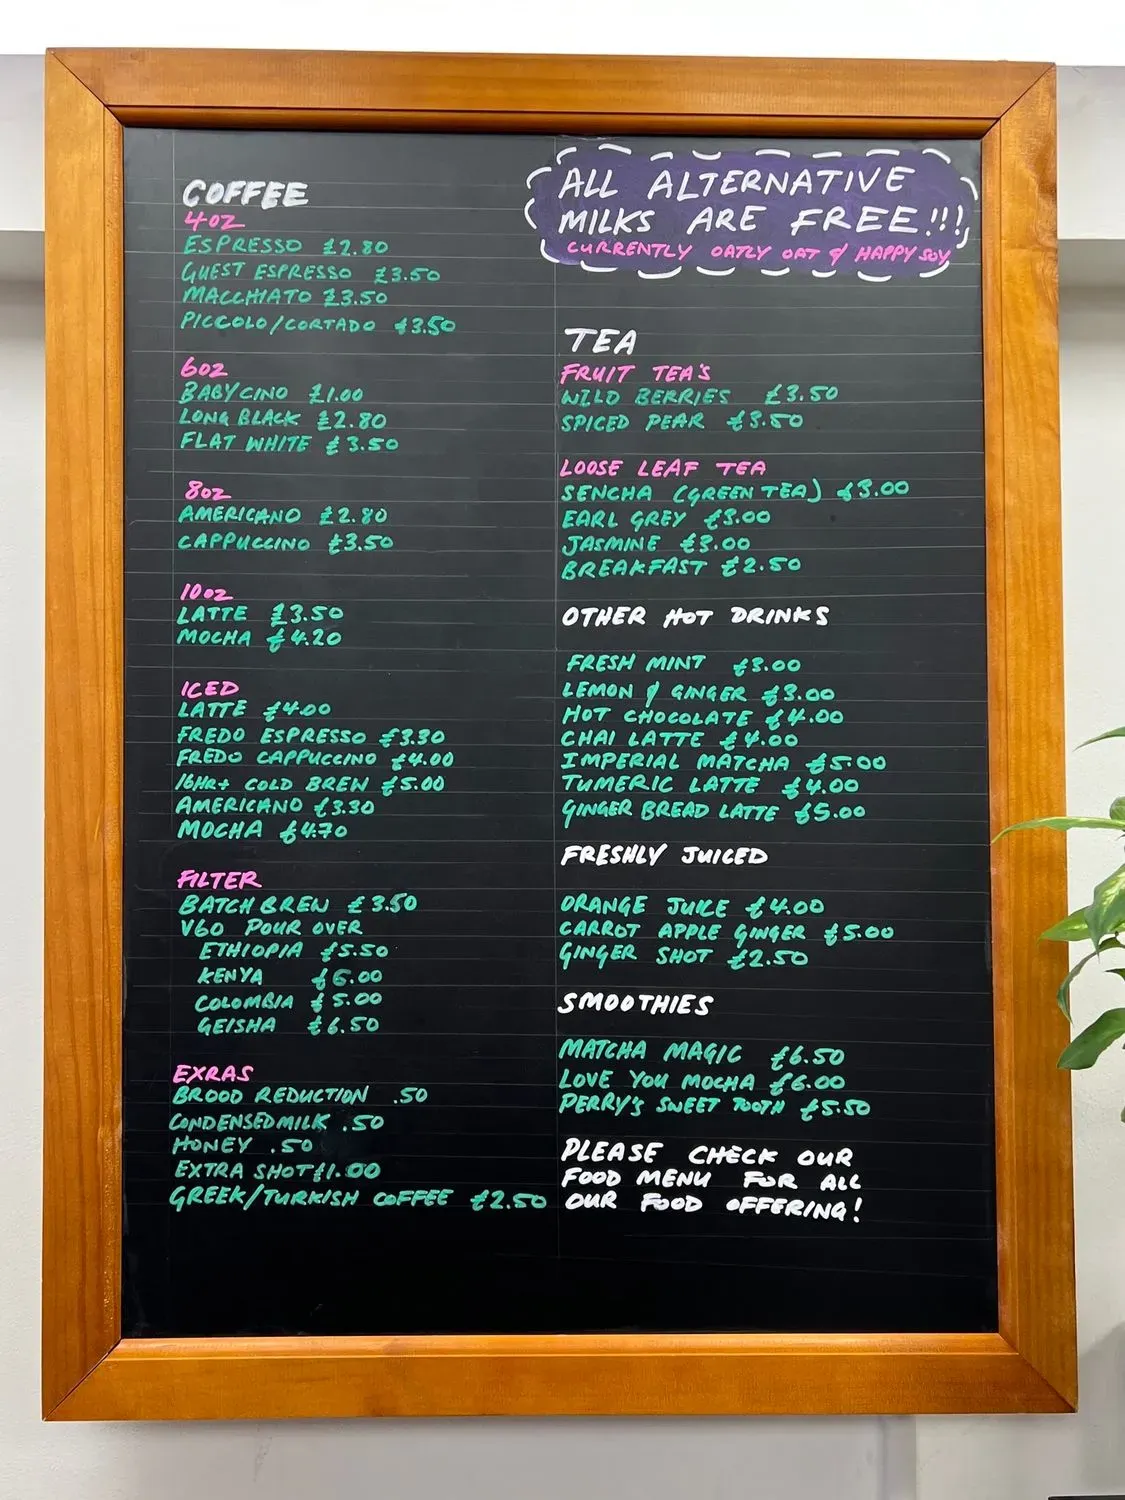 COFFEE
4oz
ESPRESSO £2.80
GUEST ESPRESSO £3.50
MACCHIATO £3.50
PICCOLO/CORTADO £3.50
6oz
BABYCINO £1.00
LONG BLACK £2.80
FLAT WHITE £3.50
8oz
AMERICANO £2.80
CAPPUCCINO £3.50
10oz
LATTE £3.50
MOCHA £4.20
ICED
LATTE £4.00
FREDO ESPRESSO £3.30
FREDO CAPPUCCINO £4.00
16HR+ COLD BREW £5.00
AMERICANO £3.30
MOCHA £4.70
FILTER
BATCH BREW £3.50
V60 POUR OVER
ETHIOPIA £5.50
KENYA £6.00
COLOMBIA £5.00
GEISHA £6.50
EXRAS
BROOD REDUCTION .50
CONDENSED MILK .50
HONEY .50
EXTRA SHOT £1.00
GREEK/TURKISH COFFEE £2.50
ALL ALTERNATIVE
MILKS ARE FREE!!!
CURRENTLY OATLY OAT & HAPPY SOY
TEA
FRUIT TEA'S
WILD BERRIES £3.50
SPICED PEAR £3.50
LOOSE LEAF TEA
SENCHA (GREEN TEA) £3.00
EARL GREY £3.00
JASMINE £3.00
BREAKFAST £2.50
OTHER HOT DRINKS
FRESH MINT £3.00
LEMON & GINGER £3.00
HOT CHOCOLATE £4.00
CHAI LATTE £4.00
IMPERIAL MATCHA £5.00
TUMERIC LATTE £4.00
GINGER BREAD LATTE £5.00
FRESHLY JUICED
ORANGE JUICE £4.00
CARROT APPLE GINGER £5.00
GINGER SHOT £2.50
SMOOTHIES
MATCHA MAGIC £6.50
LOVE YOU MOCHA £6.00
PERRY'S SWEET TOOTH £5.50
PLEASE CHECK OUR
FOOD MENU FOR ALL
OUR FOOD OFFERING!